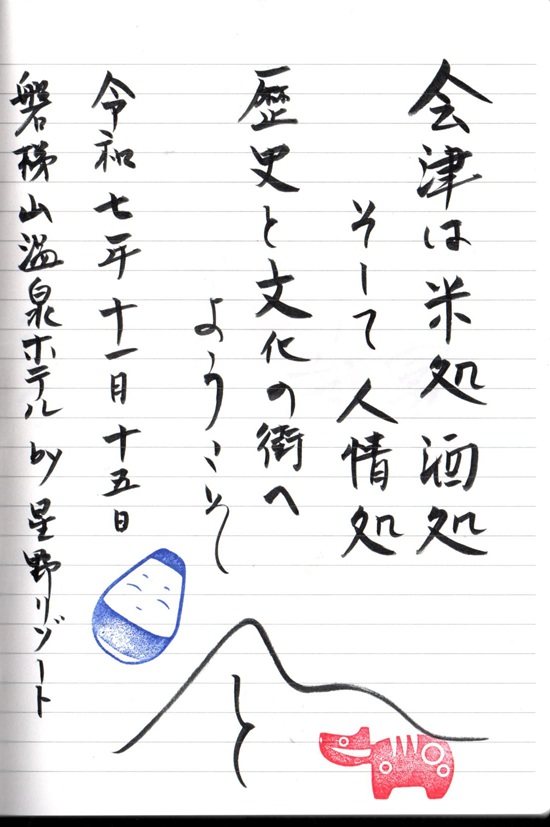 会津は米処 酒処
そして人情処
歴史と文化の街へ
ようこそ
令和七年十一月十五日
磐梯山温泉ホテル by 星野リゾート
と